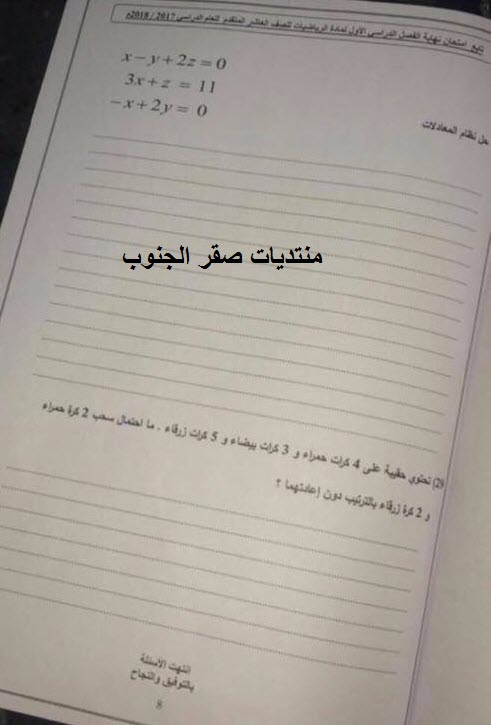 تابع امتحان نهاية الفصل الدراسي الأول لمادة الرياضيات للصف العاشر المتقدم للعام الدراسي 2017 / 2018م
حل نظام المعادلات
x − y + 2z = 0
3x + z = 11
−x + 2y = 0
منتديات صقر الجنوب
29) تحتوي حقيبة على 4 كرات حمراء و 3 كرات بيضاء و 5 كرات زرقاء . ما احتمال سحب 2 كرة حمراء
و 2 كرة زرقاء بالترتيب دون إعادتهما ؟
انتهت الأسئلة
بالتوفيق والنجاح
8